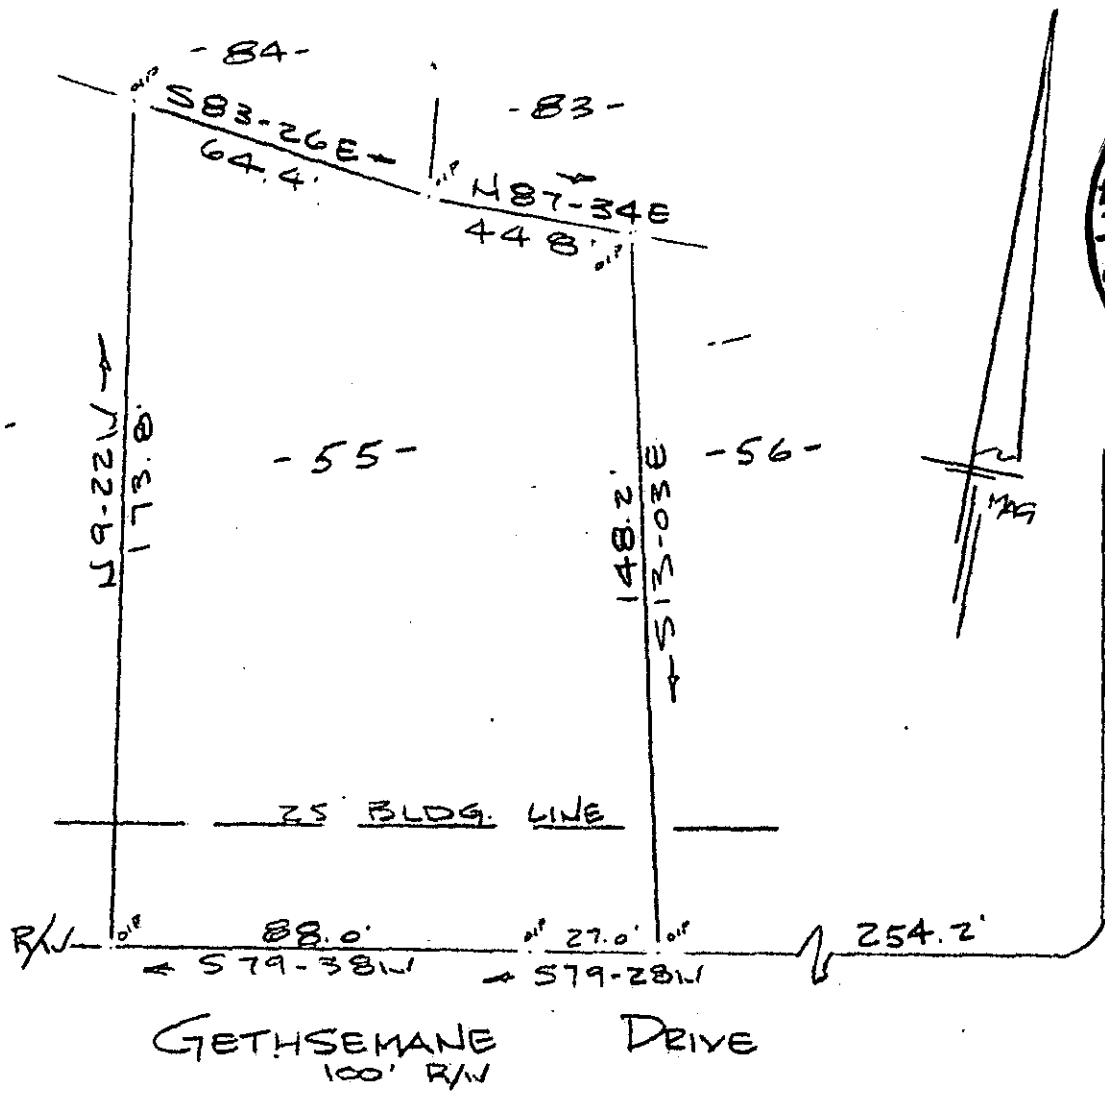 - 84 -
OIP
- 83 -
S83-26E
64.4'
OIP
N87-34E
44.8'
OIP
N9-22W
173.8'
- 55 -
148.2'
S13-03E
- 56 -
MAG
25' BLDG. LINE
R/W
OIP
88.0'
OIP
27.0'
OIP
254.2'
S79-38W
S79-28W
GETHSEMANE DRIVE
100' R/W